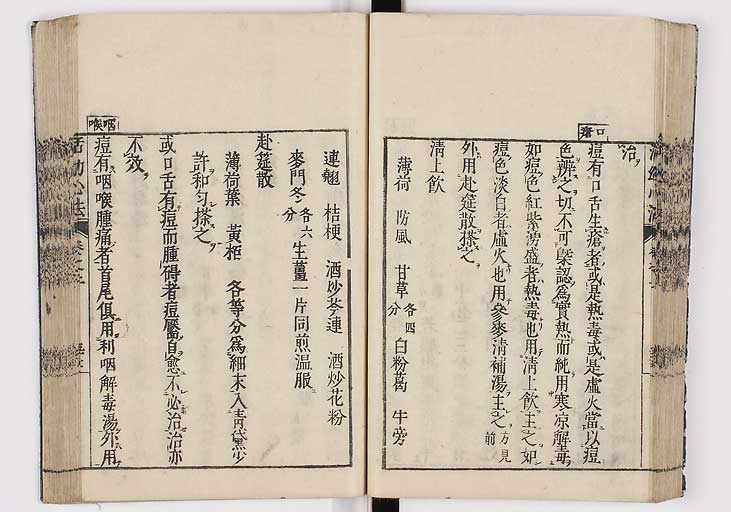 治
口瘡
痘有口舌生瘡者或是熱毒或是虛火當以痘
色辨之切不可槩認爲實熱而純用寒凉解毒
如痘色紅紫湧盛者熱毒也用淸上飮主之如
痘色淡白者虛火也用參麥淸補湯主之方見前
外用赴筵散搽之
淸上飮
薄荷 防風 甘草各四分 白粉葛 牛蒡
連翹 桔梗 酒炒芩連 酒炒花粉
麥門冬各六分 生薑一片同煎温服
赴筵散
薄荷葉 黃栢 各等分爲細末入靑黛少
許和勻搽之
或口舌有痘而腫碍者痘靨自愈不必治治亦
不效
咽喉
痘有咽喉腫痛者首尾俱用利咽解毒湯外用
活幼心法